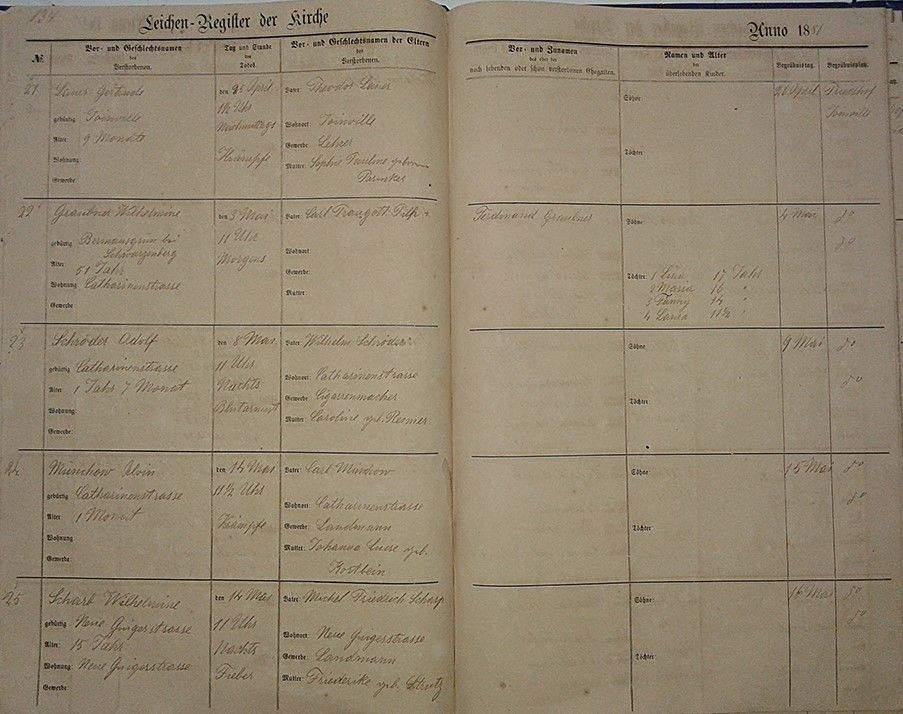 134
Leichen-Register der Kirche
Anno 1881
№
Vor- und Geschlechtsnamen
des
Verstorbenen.
Tag und Stunde
des
Todes.
Vor- und Geschlechtsnamen der Eltern
des
Verstorbenen.
Vor- und Zunamen
des oder der
noch lebenden oder schon verstorbenen Ehegatten.
Namen und Alter
der
überlebenden Kinder.
Begräbnistag.
Begräbnisplatz.
21
Gertrude
gebürtig Joinville
Alter: 9 Monate
Wohnung:
Gewerbe:
den 25 April
1½ Uhr
Nachmittags
Krämpfe
Vater: Theodor
Wohnort: Joinville
Gewerbe: Lehrer
Mutter: Sophie Pauline geborne
Söhne:
Töchter:
26 April
Friedhof
Joinville
22
Graubner Wilhelmine
gebürtig Bermansgrün bei
Schwarzenberg
Alter: 51 Jahr
Wohnung: Catharinenstrasse
Gewerbe
den 3 Mai
11 Uhr
Morgens
Vater: Carl Traugott
Wohnort:
Gewerbe:
Mutter:
Ferdinand Graubner
Söhne:
Töchter: 1 Lina 17 Jahr
2 Maria 16 "
3 Fanny 14 "
4 Laura 11½ "
4 Mai
do
do
23
Schröder Adolf
gebürtig Catharinenstrasse
Alter 1 Jahr 7 Monat
Wohnung:
Gewerbe:
den 8 Mai
11 Uhr
Nachts
Blutarmut
Vater: Wilhelm Schröder
Wohnort: Catharinenstrasse
Gewerbe: Cigarrenmacher
Mutter: Caroline geb. Resmer
Söhne:
Töchter:
9 Mai
do
do
24
Münchow Alwin
gebürtig Catharinenstrasse
Alter 1 Monat
Wohnung
Gewerbe:
den 14 Mai
11½ Uhr
Krämpfe
Vater: Carl Münchow
Wohnort: Catharinenstrasse
Gewerbe: Landmann
Mutter: Johanna geb.
Söhne:
Töchter:
15 Mai
do
do
25
Scharf Wilhelmine
gebürtig Neue
Alter: 15 Jahr
Wohnung: Neue
Gewerbe:
den 14 Mai
11 Uhr
Nachts
Fieber
Vater: Michel Friedrich Scharf
Wohnort: Neue
Gewerbe: Landmann
Mutter: Friederike geb.
Söhne:
Töchter:
16 Mai
do
do